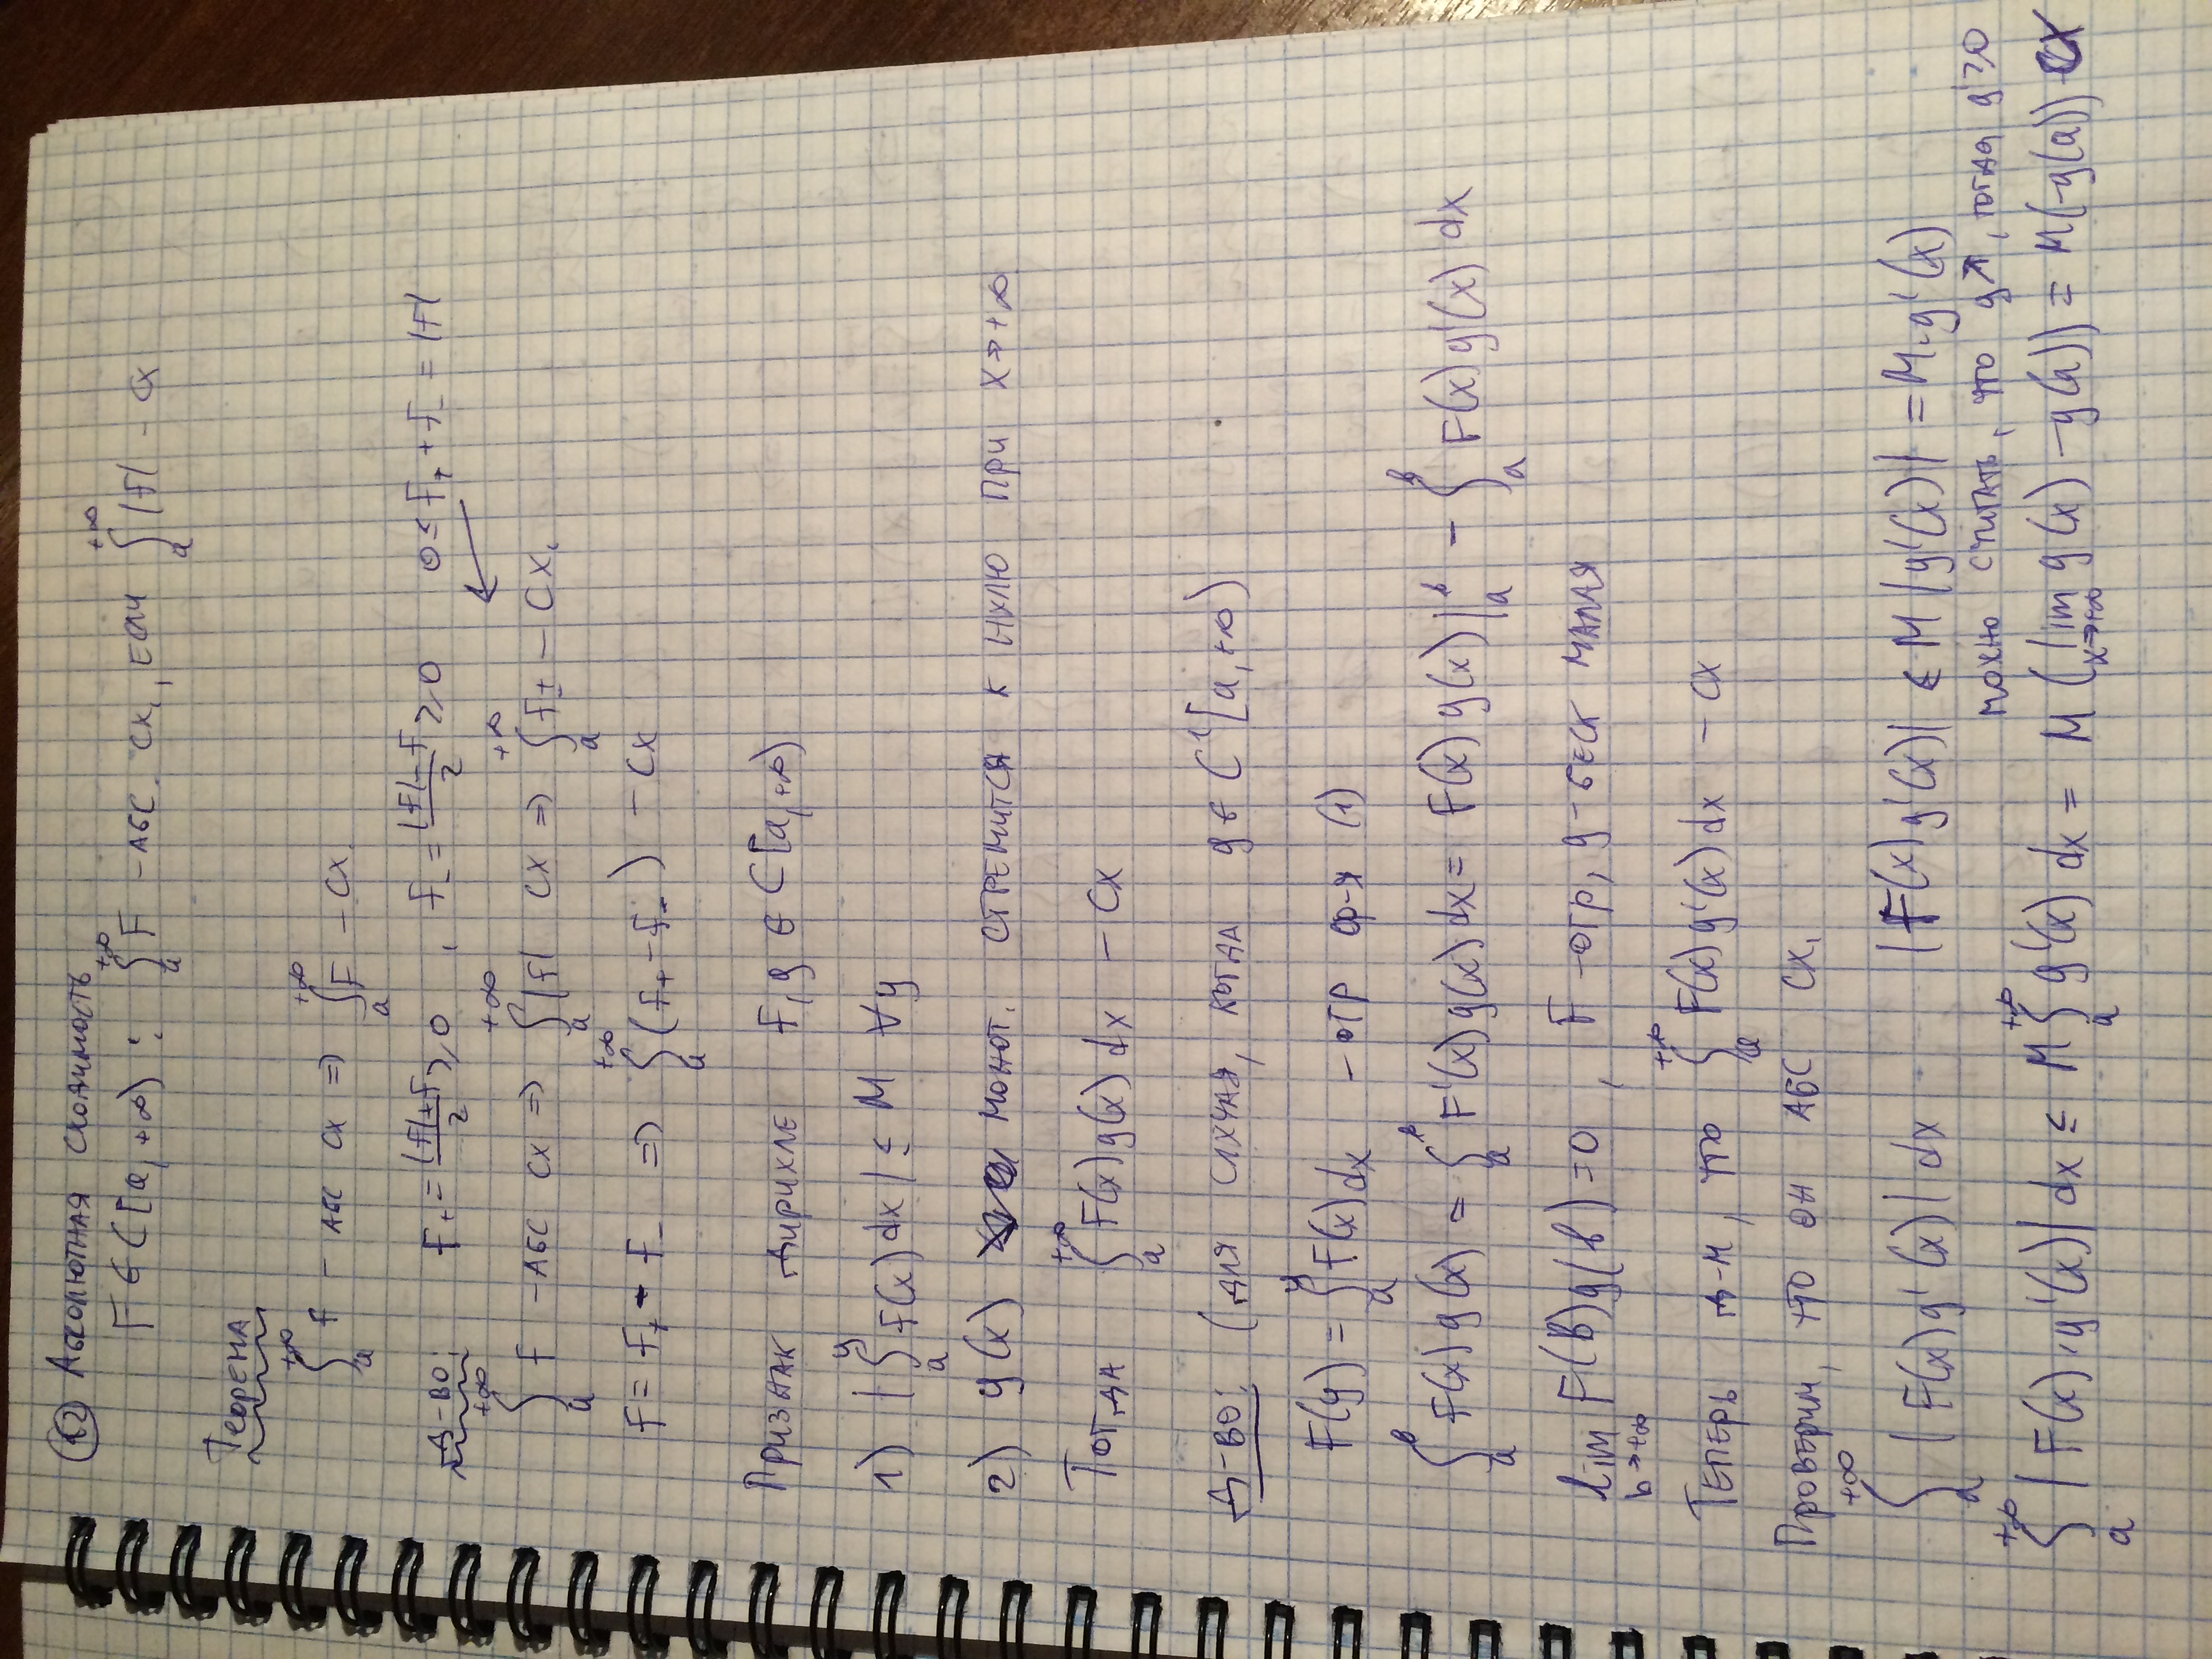 12 Абсолютная сходимость
f ∈ C[a, +∞) : ∫_a^{+∞} f – абс. сх., если ∫_a^{+∞} |f| – сх
Теорема
∫_a^{+∞} f – абс сх ⇒ ∫_a^{+∞} f – сх.
Д-во: f₊ = (|f|+f)/2 ≥ 0 , f₋ = (|f|-f)/2 ≥ 0 0 ≤ f₊ + f₋ = |f|
∫_a^{+∞} f – абс сх ⇒ ∫_a^{+∞} |f| сх ⇒ ∫_a^{+∞} f± – сх.
f = f₊ - f₋ ⇒ ∫_a^{+∞} (f₊ - f₋) – сх
Признак Дирихле f, g ∈ C[a, +∞)
1) |∫_a^y f(x) dx| ≤ M ∀y
2) g(x) монот. стремится к нулю при x→+∞
Тогда ∫_a^{+∞} f(x) g(x) dx – сх
Д-во: (для случая, когда g ∈ C¹[a, +∞)
F(y) = ∫_a^y f(x) dx – огр ф-я (1)
∫_a^b f(x) g(x) = ∫_a^b F'(x) g(x) dx = F(x) g(x) |_a^b – ∫_a^b F(x) g'(x) dx
lim_{b→+∞} F(b) g(b) = 0 , F – огр, g – беск малая
Теперь д-м, что ∫_a^{+∞} F(x) g'(x) dx – сх
Проверим, что он абс сх.
∫_a^{+∞} |F(x) g'(x)| dx |F(x) g'(x)| ≤ M |g'(x)| = M · g'(x)
можно считать, что g↗, тогда g' ≥ 0
∫_a^{+∞} |F(x) · g'(x)| dx ≤ M ∫_a^{+∞} g'(x) dx = M (lim_{x→+∞} g(x) – g(a)) = M(-g(a)) – сх